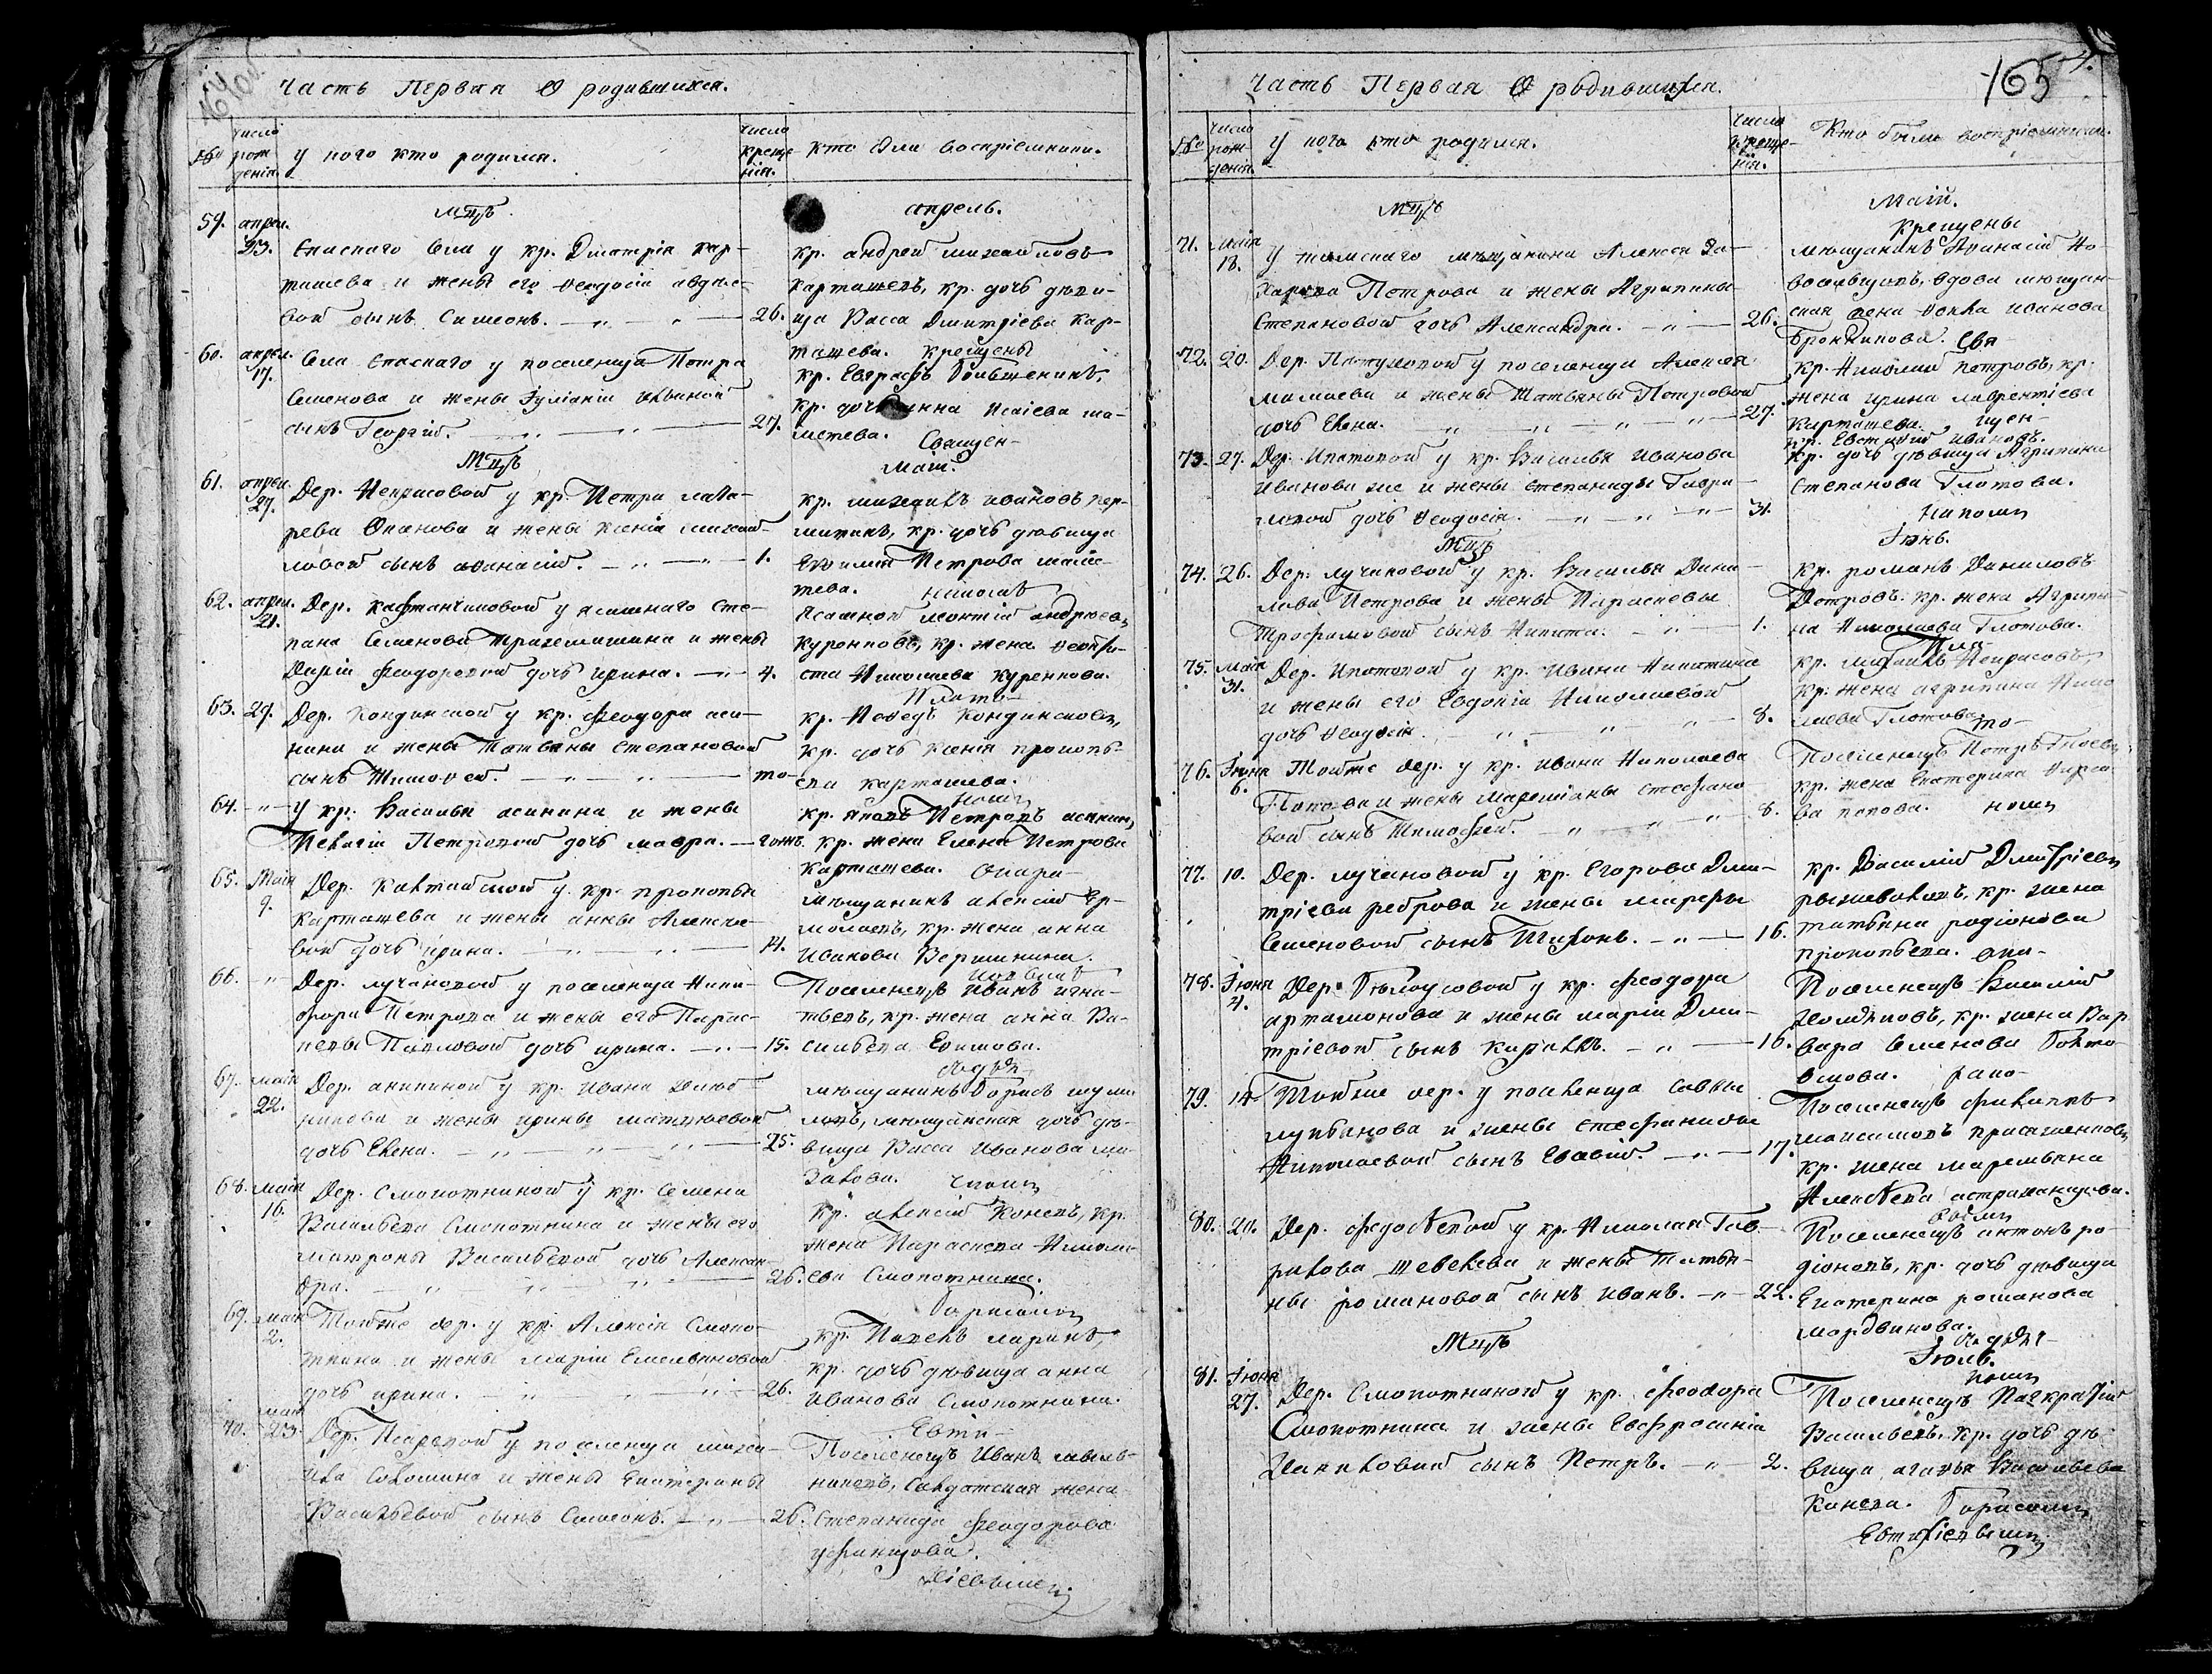 Часть Первая О родившихся.
№
число рождения.
у кого кто родился.
число крещения.
Кто были восприемники.
Мцъ апрель.
59. апрел. 23. Спаскаго села у кр. Дмитрія Кар-
ташева и жены его Ѳеодосіи авдѣе-
вой сынъ Симеонъ. 26.
кр. андрей михайловъ
карташевъ, кр. дочь дѣви-
ца Васса Дмитріева кар-
ташева. крещены
60. апрел. 17. Села Спаскаго у поселенца Петра
Семенова и жены Іуліаніи Ильиной
сынъ Георгій. 27.
кр. Евграфъ
кр. дочь анна Исаіева
Священ-
Мцъ Маій.
61. апрел. 27. Дер. Некрасовой у кр. Петра лаза-
рева и жены Ксеніи михай-
ловой сынъ аѳанасій. 1.
кр. михаилъ ивановъ пер-
митинъ, кр. дочь дѣвица
Петрова
тева. николай
62. апрел. 21. Дер. Кафтанчиковой у ясашнаго Сте-
пана Семенова и жены
Даріи Феодоровой дочь ирина. 4.
Ясашной леонтій андреевъ
куренковъ, кр. жена Ѳеокти-
ста Николаева куренкова.
Плато-
63. 29. Дер. Кондинской у кр. Феодора аси-
нина и жены Татьяны Степановой
сынъ Тимоѳей. то-
кр. Кондинсковъ,
кр. дочь Ксенія прокопь-
ева карташева.
номъ
64. У кр. Василья асинина и жены
Пелагіи Петровой дочь мавра. гожъ.
кр. яковъ Петровъ асининъ,
кр. жена Елена Петрова
Карташева. опара-
65. Маія 9. Дер. Калтайской у кр. прокопья
Карташева и жены анны Алексѣе-
вой дочь ирина. 14.
мѣщанинъ алексій Ер-
молаевъ, кр. жена анна
Иванова Вершинина.
66. Дер. лучановой у поселенца Ники-
фора Петрова и жены его Парас-
кевы Павловой дочь ирина. 15.
Поселенецъ иванъ игна-
тьевъ, кр. жена анна Ва-
сильева Ефимова.
67. маія 22. Дер. аникиной у кр. ивана
и жены ирины матвѣевой
дочь Елена. 25.
мѣщанинъ Борисъ шуми
ловъ, мѣщанская дочь дѣ-
вица Васса Иванова
68. маія 16. Дер. Смокотниной у кр. Семена
Васильева Смокотнина и жены его
матроны Васильевой дочь Алексан-
дра. 26.
кр. алексій Коневъ, кр.
жена Параскева Никола-
ева Смокотнина.
Борисомъ
69. маія 2. Тойже дер. у кр. Алексія Смоко-
тнина и жены маріи Емельяновой
дочь ирина. 26.
кр. Павелъ ларинъ,
кр. дочь дѣвица анна
иванова Смокотнина.
Евти-
70. маія 23. Дер. Писаревой у поселенца миха-
ила Соломина и жены Екатерины
Васильевой сынъ Симеонъ. 26.
Поселенецъ Иванъ мель-
никовъ, Салдатская жена
Степанида Феодорова
хіевымъ.
165
Часть Первая О родившихся.
№
число рождения.
у кого кто родился.
Число крещения.
Кто были восприемники.
Мцъ Маій.
Крещены
71. Маія 18. У томскаго мѣщанина Алексея За-
харова Петрова и жены Агрипины
Степановой дочь Александра. 26.
мѣщанинъ Аѳанасій Но-
восельцовъ, вдова мѣщан-
ская жена Ѳекла иванова
Свя-
72. 20. Дер. Петуховой у поселенца Алексея
мамаева и жены Татьяны Петровой
дочь Елена. 27.
кр. Николай петровъ, кр.
жена ирина лаврентіева
Карташева. щен-
73. 27. Дер. Ипатовой у кр. Василья Иванова
Иванова же и жены Степаниды Гаври-
ловой дочь Ѳеодосія. 31.
кр. Евстафій ивановъ.
кр. дочь дѣвица Агрипина
Степанова Глотова.
никомъ
Мцъ Іюнь.
74. 26. Дер. лучановой у кр. Василья Дани-
лова Петрова и жены Параскевы
Трофимовой сынъ Никита. 1.
кр. романъ Даниловъ
Петровъ. кр. жена Агрипи-
на Николаева Глотова.
75. маія 31. Дер. Ипатовой у кр. Ивана Никитина
и жены его Евдокіи Николаевой
дочь Ѳеодосія. 8.
кр. михаилъ Некрасовъ,
кр. жена агрипина Нико
лаева Глотова. то-
76. Іюня 6. Тойже дер. у кр. ивана Николаева
Попова и жены мареміаны Стефано-
вой сынъ Тимофей. 8.
Поселенецъ Петръ
кр. жена Екатерина Кирса-
ва попова. номъ
77. 10. Дер. лучановой у кр. Егорова Дми-
тріева реброва и жены
Семеновой сынъ Тихонъ. 16.
кр. Василій Дмитріевъ
кр. жена
татьяна родіонова
прокопьева. опа-
78. Іюня 4. Дер. Бѣлоусовой у кр. Феодора
артамонова и жены маріи Дми-
тріевой сынъ Кирилъ. 16.
Поселенецъ Василій
кр. жена Вар
вара Семенова
79. 14. Тойже дер. у поселенца Саввы
лукьянова и жены Стефаниды
Николаевой сынъ Елисій. 17.
Поселенецъ филиппъ
максимовъ
кр. жена маремьяна
Алексѣева астраханцова.
80. 20. Дер. Федосѣевой у кр. Николая Гав-
рилова шевелева и жены Татья-
ны романовой сынъ иванъ. 22.
Поселенецъ антонъ ро-
діоновъ, кр. дочь дѣвица
Екатерина романова
мордвинова.
Мцъ Іюль.
81. Іюня 27. Дер. Смокотниной у кр. Феодора
Смокотнина и жены Евфросиніи
Даниловой сынъ Петръ. 2.
Поселенецъ Панкратій
Васильевъ, кр. дочь дѣ-
вица агафья Васильева
Конева. Борисомъ
Евтихіевымъ.